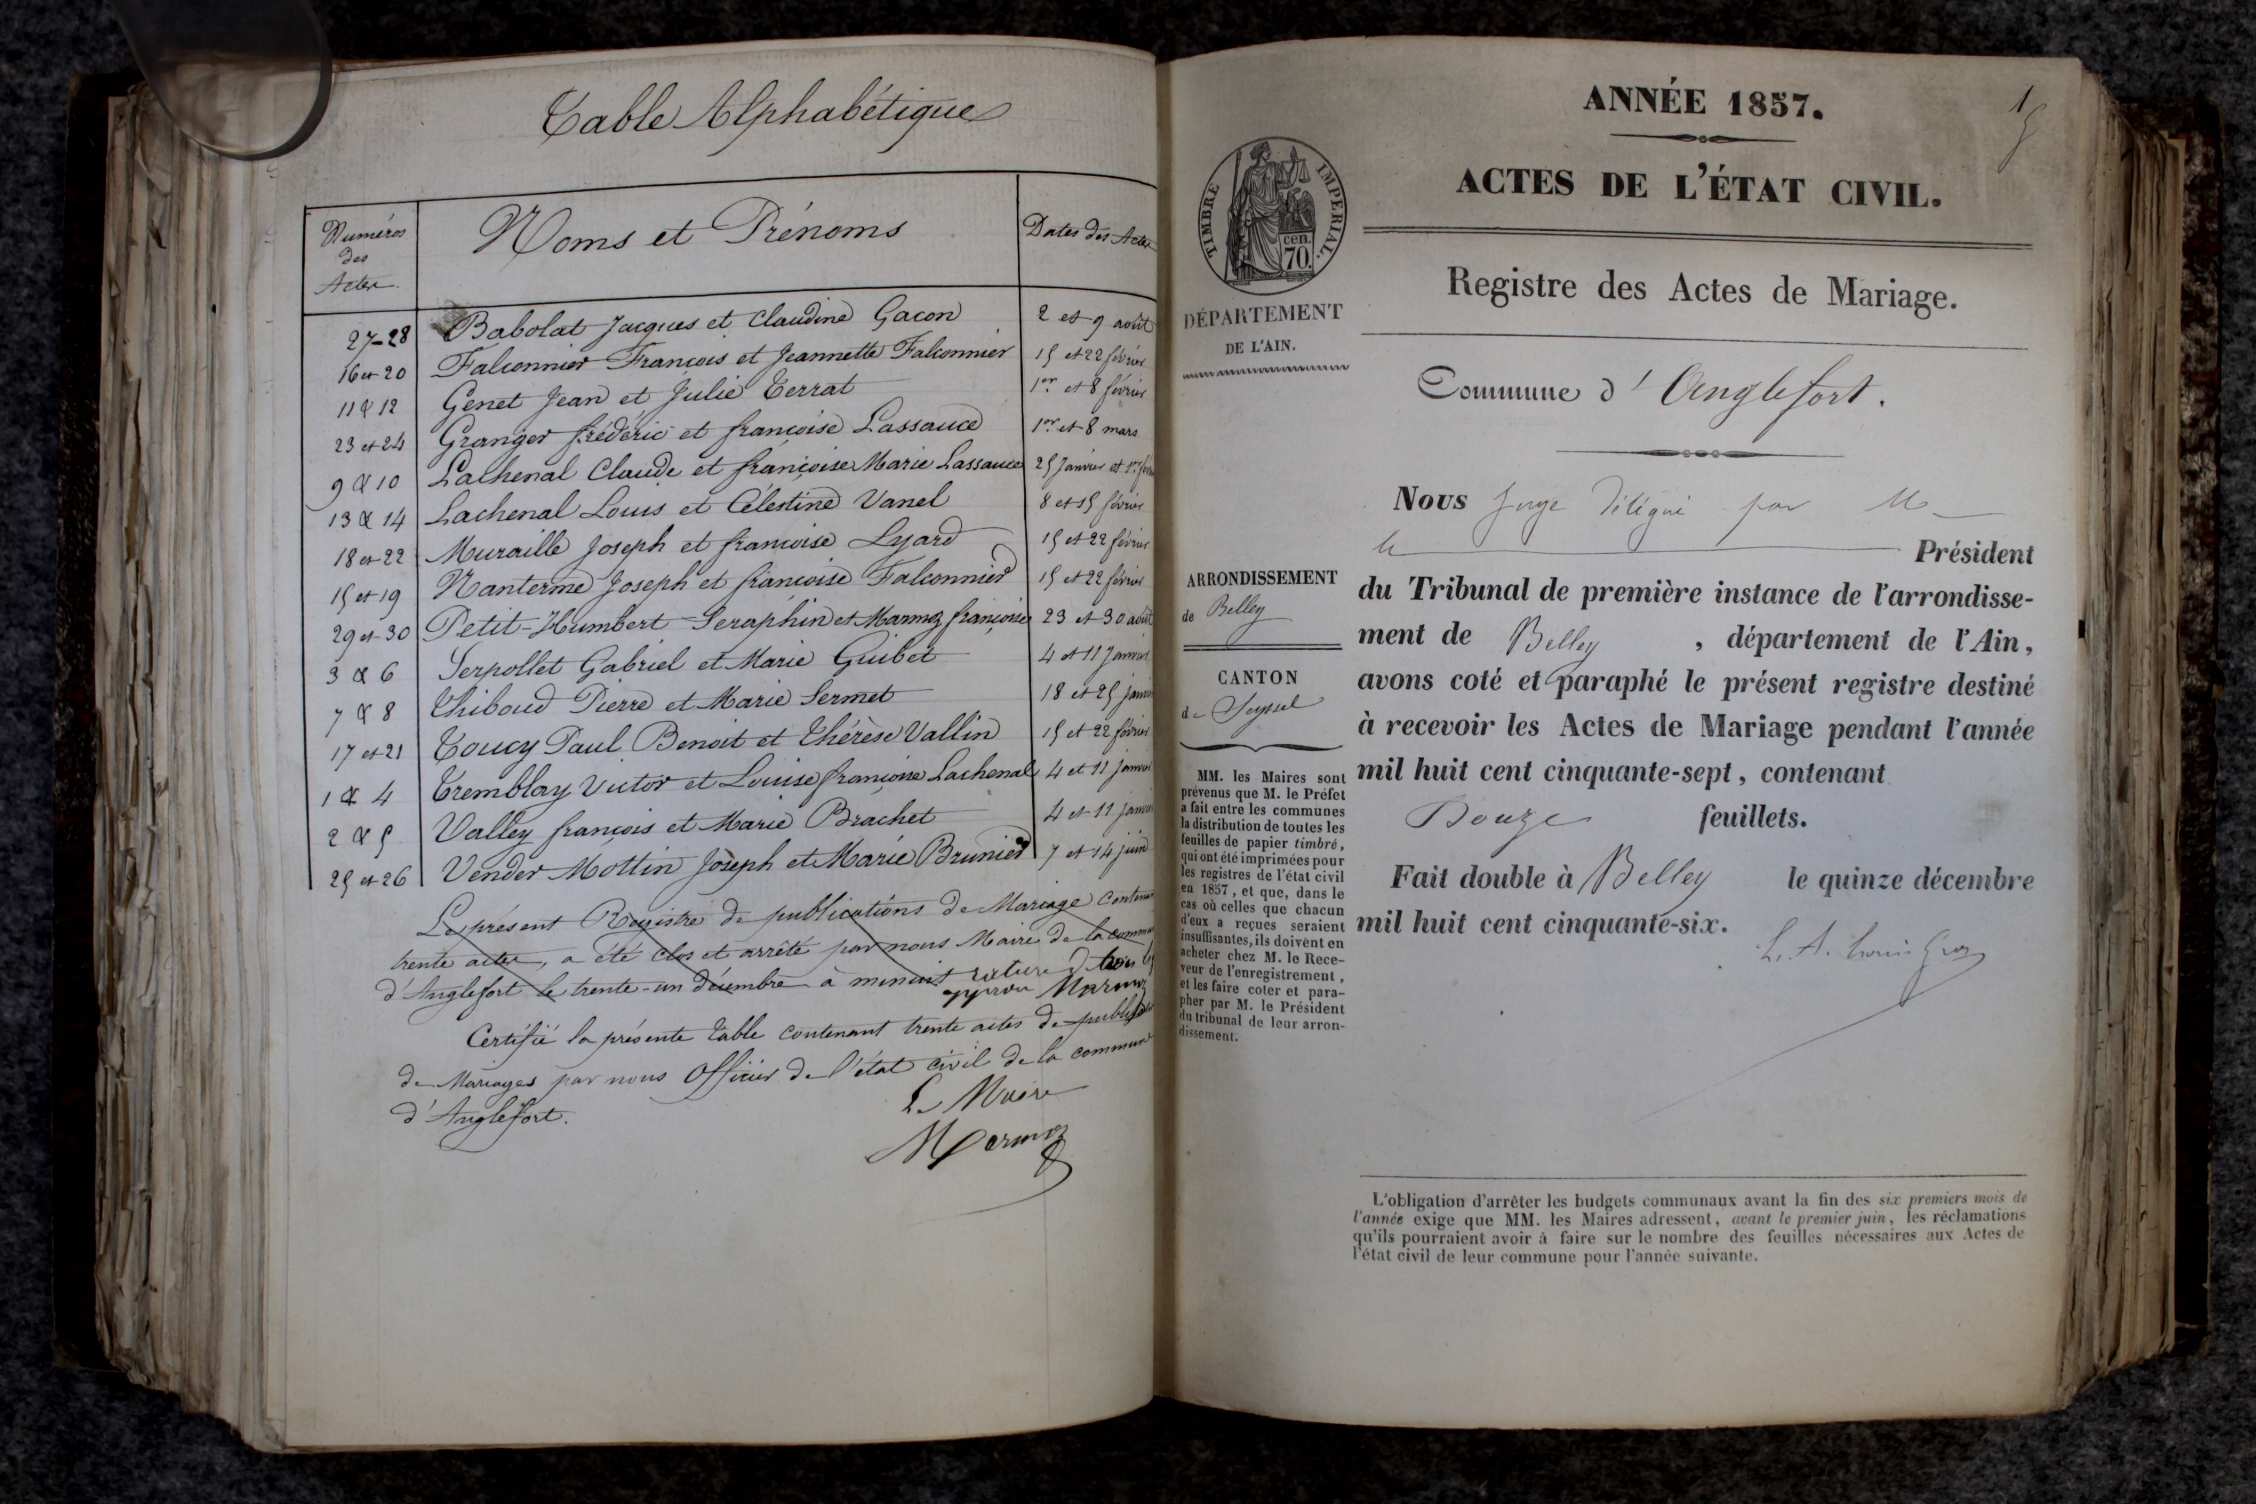 Table Alphabétique
Numéros des Actes
Noms et Prénoms
Dates des Actes
27-28 Babolat Jacques et Claudine Gacon 2 et 9 août
16 et 20 Falconnier François et Jeannette Falconnier 15 et 22 février
11 & 12 Genet Jean et Julie Terrat 1er et 8 février
23 et 24 Granger frédéric et françoise Lassauce 1er et 8 mars
9 & 10 Lachenal Claude et françoise Marie Lassauce 25 Janvier et 1er
13 & 14 Lachenal Louis et Célestine Vanel 8 et 15 février
18 et 22 Muraille Joseph et françoise Lyard 15 et 22 février
15 et 19 Nanterme Joseph et françoise Falconnier 15 et 22 février
29 et 30 Petit-Humbert Seraphin et Marmoz françoise 23 et 30 août
3 & 6 Serpollet Gabriel et Marie Guibet 4 et 11 Janvier
7 & 8 Thiboud Pierre et Marie Sermet 18 et 25 janvier
17 et 21 Toucy Paul Benoit et Thérèse Vallin 15 et 22 février
1 & 4 Tremblay Victor et Louise françoise Lachenal 4 et 11 janvier
2 & 5 Valley françois et Marie Brachet 4 et 11 janvier
25 et 26 Vender Mottin Joseph et Marie Brunier 7 et 14 juin
Le présent Registre de publications de Mariage contenant
trente actes, a été clos et arrêté par nous Maire de la commune
d'Anglefort le trente-un décembre à minuit rature de trois
Certifié la présente table contenant trente actes de
de Mariages par nous Officier de l'état civil de la commune
d'Anglefort.
Le Maire
Marmoz
1
ANNÉE 1857.
ACTES DE L'ÉTAT CIVIL.
TIMBRE IMPERIAL.
cen.
70.
DÉPARTEMENT
DE L'AIN.
Registre des Actes de Mariage.
Commune d'Anglefort.
Nous Juge délégué par M
le Président
du Tribunal de première instance de l'arrondisse-
ment de Belley , département de l'Ain,
avons coté et paraphé le présent registre destiné
à recevoir les Actes de Mariage pendant l'année
mil huit cent cinquante-sept, contenant
Douze feuillets.
Fait double à Belley le quinze décembre
mil huit cent cinquante-six.
ARRONDISSEMENT
de Belley
CANTON
de Seyssel
MM. les Maires sont
prévenus que M. le Préfet
a fait entre les communes
la distribution de toutes les
feuilles de papier timbré,
qui ont été imprimées pour
les registres de l'état civil
en 1857, et que, dans le
cas où celles que chacun
d'eux a reçues seraient
insuffisantes, ils doivent en
acheter chez M. le Rece-
veur de l'enregistrement,
et les faire coter et para-
pher par M. le Président
du tribunal de leur arron-
dissement.
L'obligation d'arrêter les budgets communaux avant la fin des six premiers mois de
l'année exige que MM. les Maires adressent, avant le premier juin, les réclamations
qu'ils pourraient avoir à faire sur le nombre des feuilles nécessaires aux Actes de
l'état civil de leur commune pour l'année suivante.